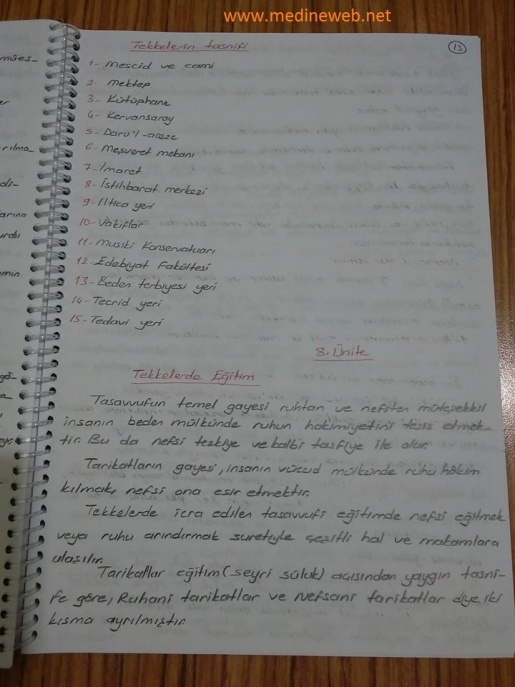 www.medineweb.net
Tekkelerin tasnifi
13
1- Mescid ve cami
2. Mektep
3- Kütüphane
4- Kervansaray
5- Darü'l-aceze
6- Meşveret mekanı
7- İmaret
8- İstihbarat merkezi
9- İltica yeri
10- Vakıflar
11- Musiki Konservatuarı
12- Edebiyat Fakültesi
13- Beden terbiyesi yeri
14- Tecrid yeri
15- Tedavi yeri
8. Ünite
Tekkelerde Eğitim
Tasavvufun temel gayesi ruhtan ve nefisten müteşekkil
insanın beden mülkünde ruhun hakimiyetini tesis etmek-
tir. Bu da nefsi tezkiye ve kalbi tasfiye ile olur.
Tarikatların gayesi, insanın vücud mülkünde ruhu hâkim
kılmak, nefsi ona esir etmektir.
Tekkelerde icra edilen tasavvufi eğitimde nefsi eğitmek
veya ruhu arındırmak suretiyle çeşitli hal ve makamlara
ulaşılır.
Tarikatlar eğitim (seyri süluk) açısından yaygın tasni-
fe göre, Ruhani tarikatlar ve Nefsani tarikatlar diye iki
kısma ayrılmıştır.